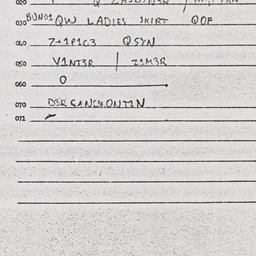 030 BUND1 QW LADIES SKIRT QOF
040 7+1P1C3 QSYN
050 V1NT3R / Z1M3R
060 O
070 DSR SANCKONT1N
071